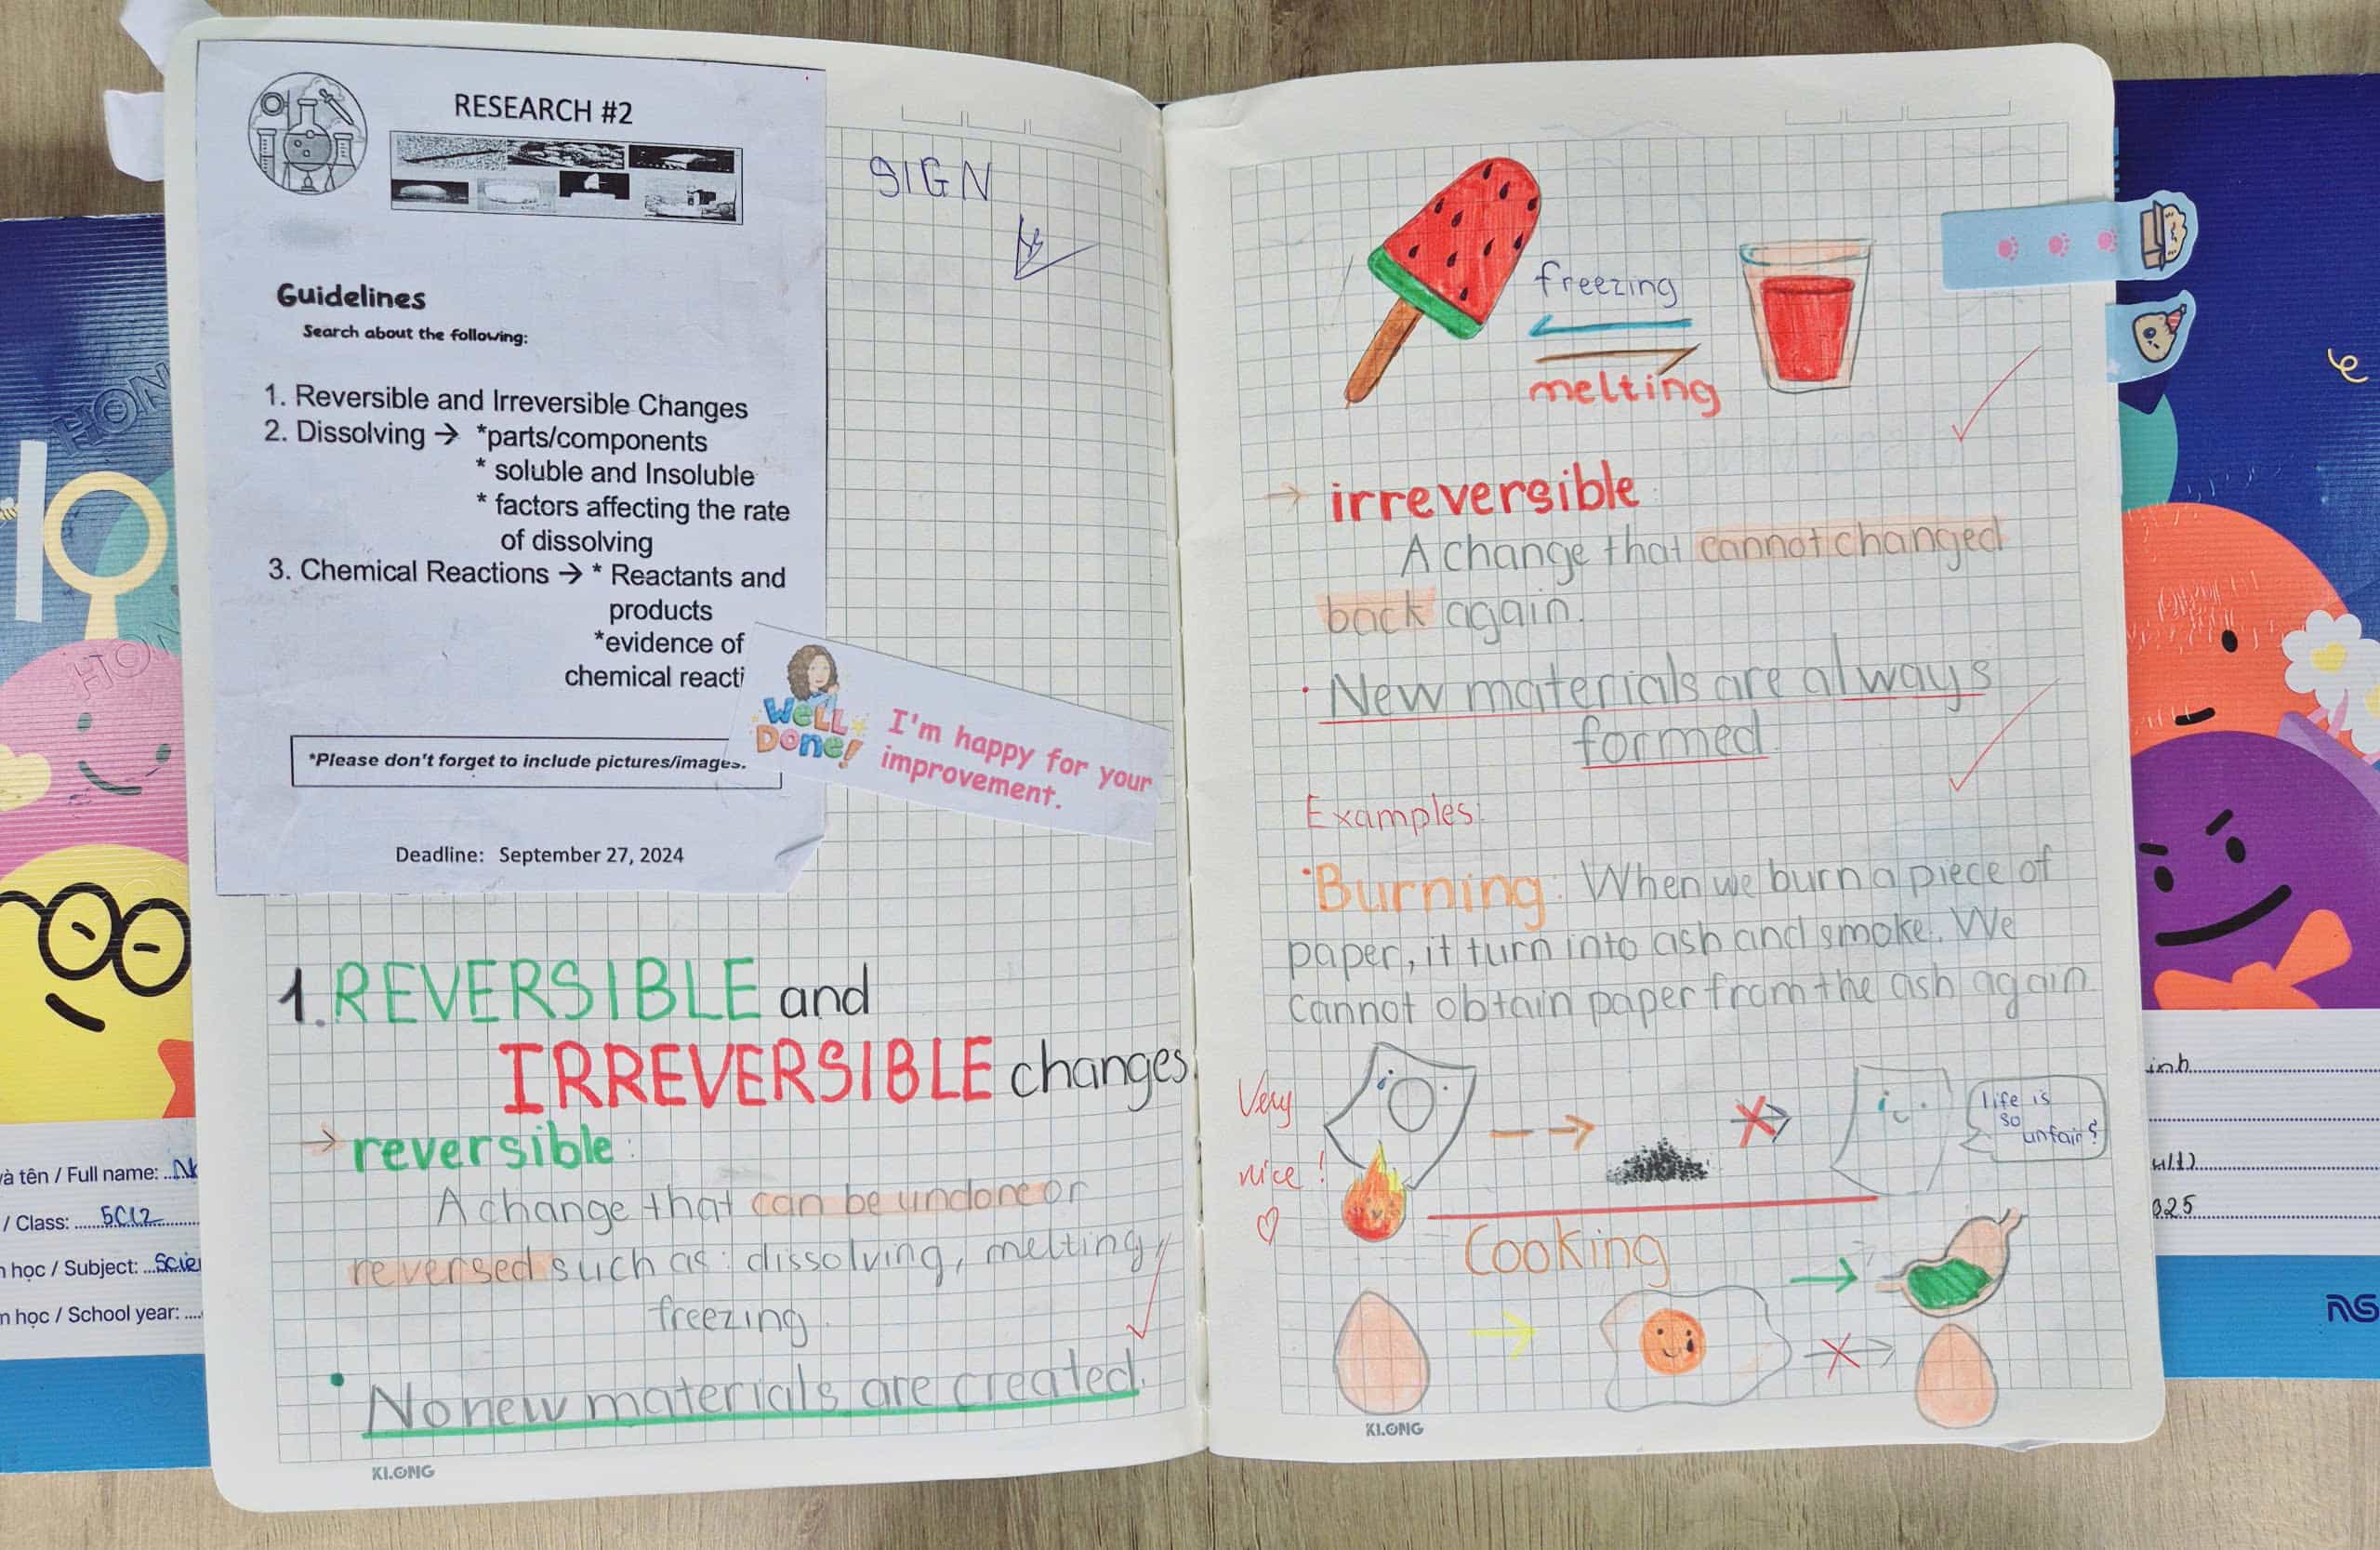 RESEARCH #2
Guidelines
Search about the following:
1. Reversible and Irreversible Changes
2. Dissolving → *parts/components
* soluble and Insoluble
* factors affecting the rate
of dissolving
3. Chemical Reactions → * Reactants and
products
*evidence of
chemical reacti
*Please don't forget to include pictures/images.
Deadline: September 27, 2024
SIGN
WELL
DONE!
I'm happy for your
improvement.
1. REVERSIBLE and
IRREVERSIBLE changes
→ reversible:
A change that can be undone or
reversed such as: dissolving, melting,
freezing.
• No new materials are created.
KLONG
freezing
melting
→ irreversible:
A change that cannot changed
back again.
• New materials are always
formed
Examples:
• Burning: When we burn a piece of
paper, it turn into ash and smoke. We
cannot obtain paper from the ash again
Very
nice!
life is
so
unfair?
Cooking
KLONG
HON
HON
và tên / Full name:
/ Class: 5CL2
n học / Subject: Scie
m học / School year:
inh
025